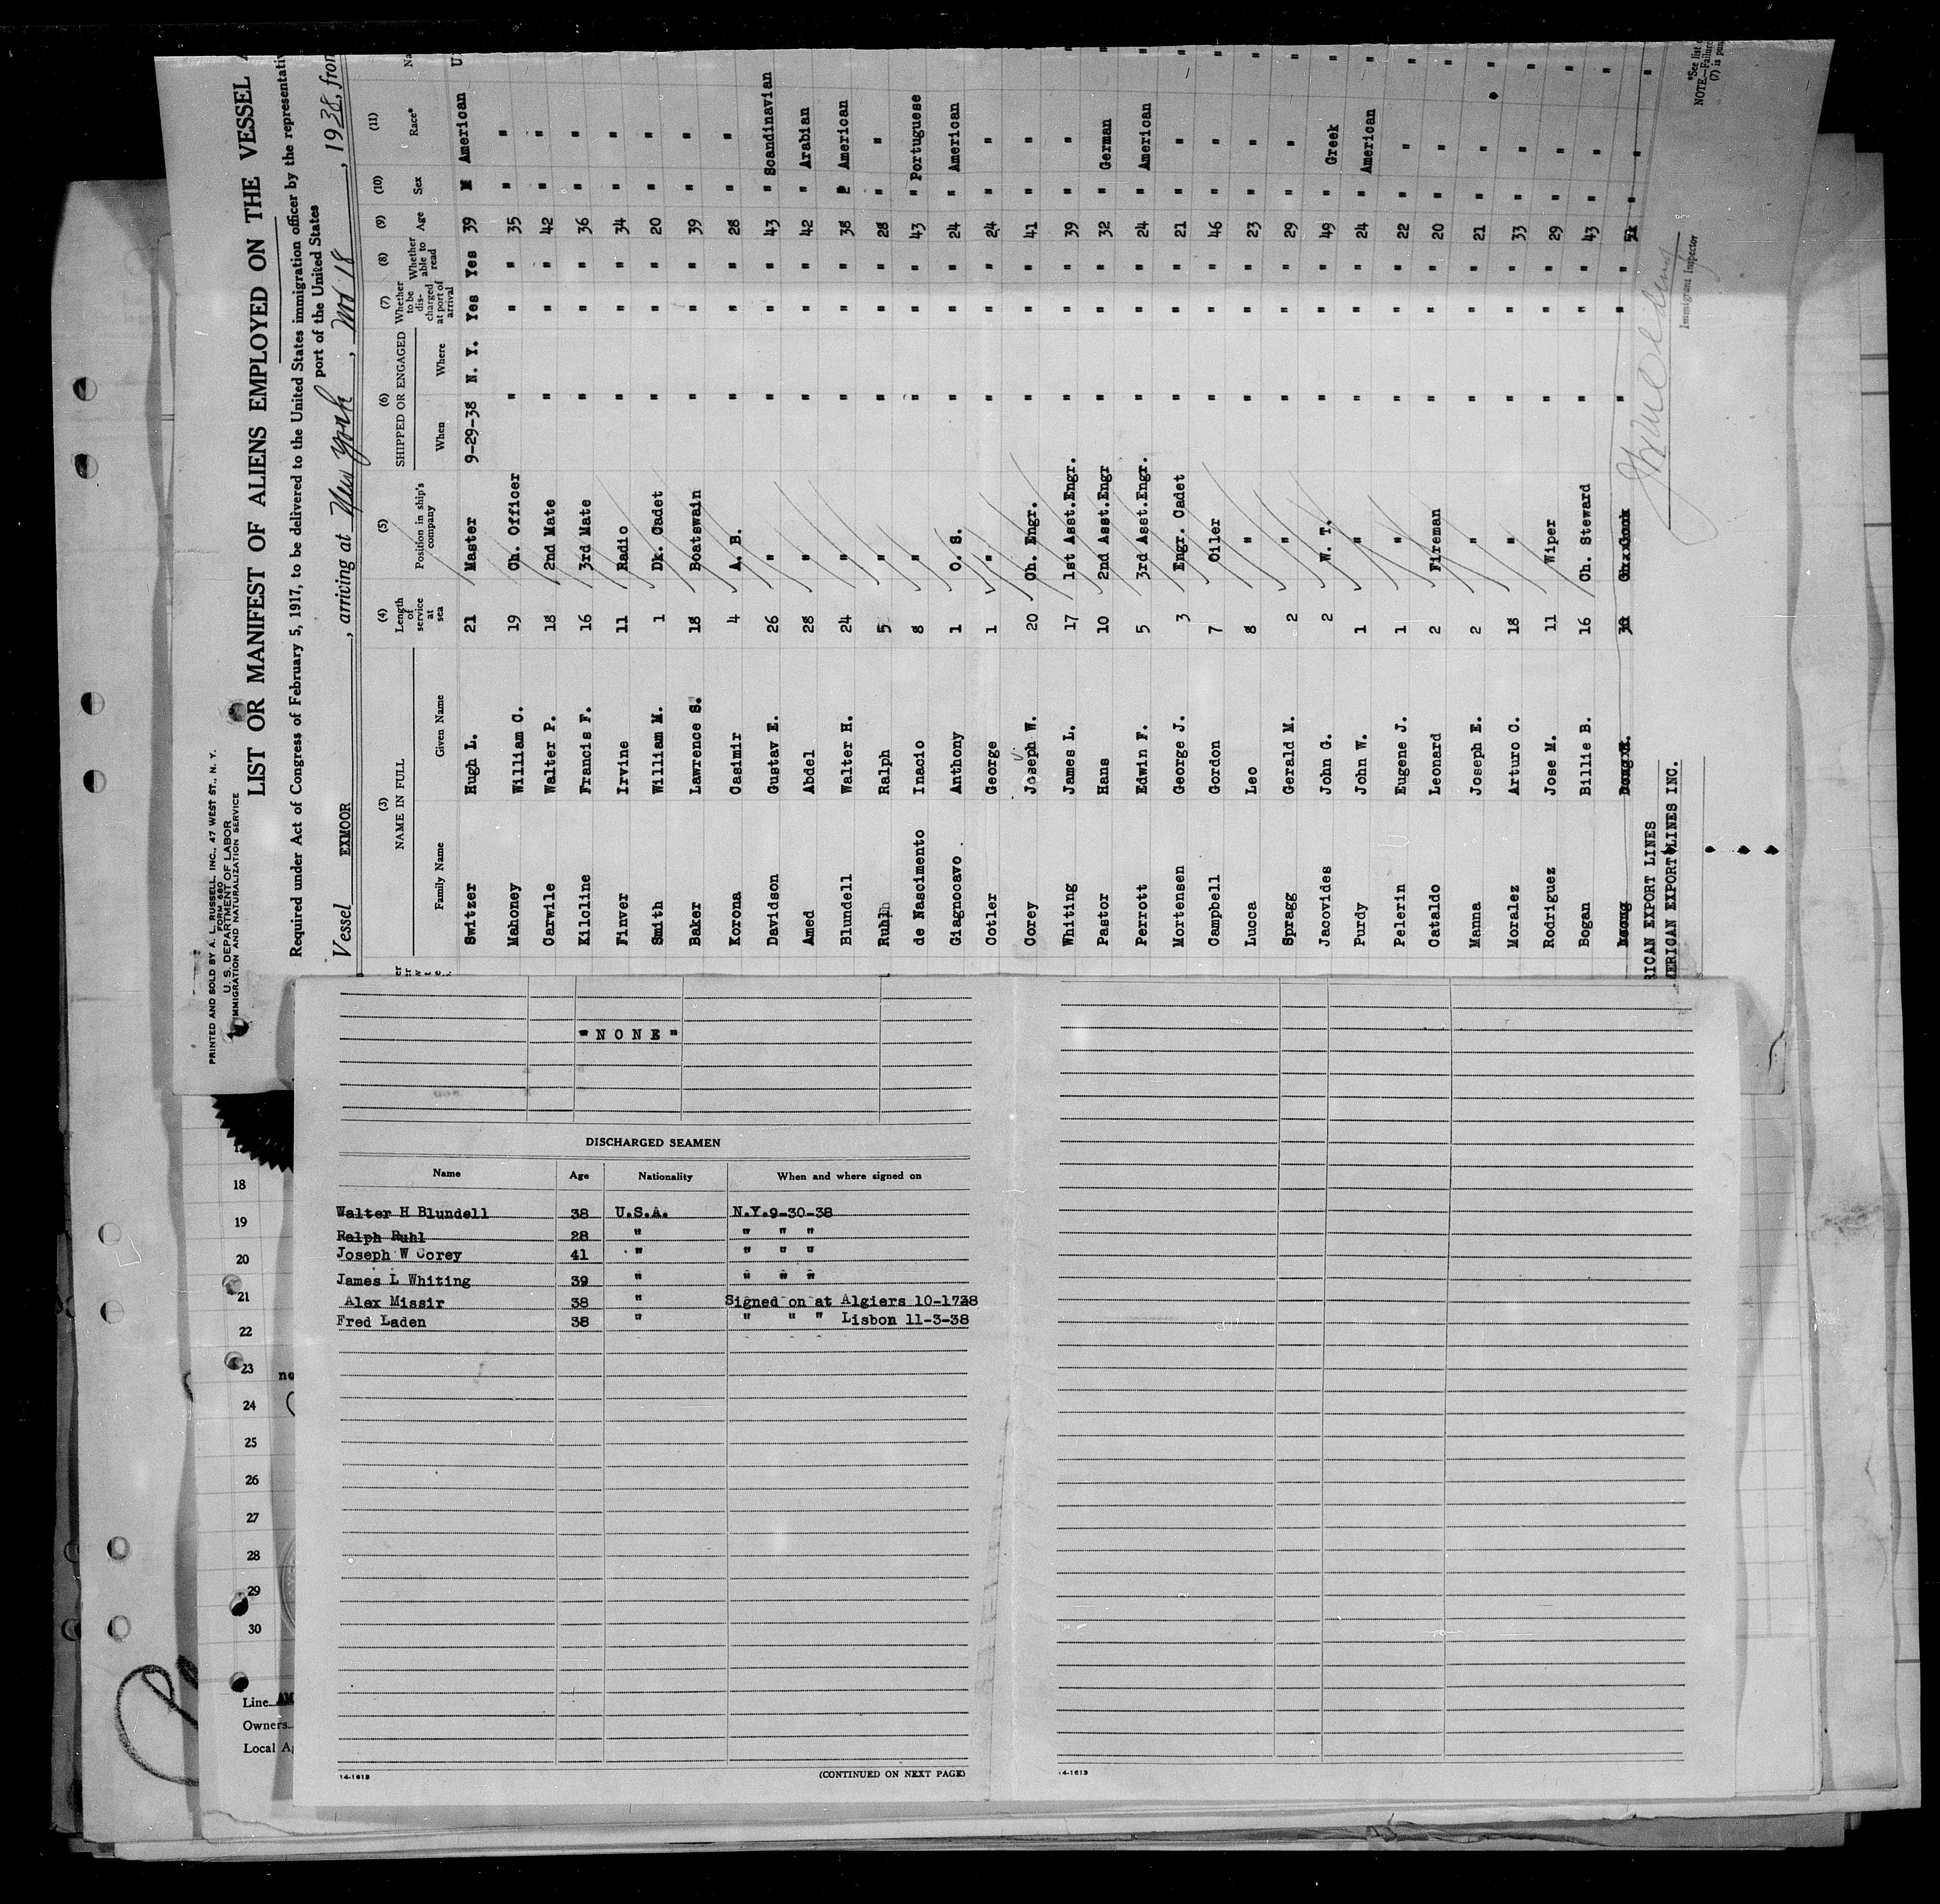 PRINTED AND SOLD BY A. L. RUSSELL, INC., 47 WEST ST., N. Y.
FORM 680
U. S. DEPARTMENT OF LABOR
IMMIGRATION AND NATURALIZATION SERVICE
LIST OR MANIFEST OF ALIENS EMPLOYED ON THE VESSEL
Required under Act of Congress of February 5, 1917, to be delivered to the United States immigration officer by the representati
port of the United States
Vessel EXMOOR, arriving at New York, Nov 18, 1938, from
(3) (4) (5) (6) (7) (8) (9) (10) (11)
NAME IN FULL Length of service at sea Position in ship's company SHIPPED OR ENGAGED Whether to be discharged at port of arrival Whether able to read Age Sex Race* Na
Family Name Given Name When Where
Switzer Hugh L. 21 Master 9-29-38 N. Y. Yes Yes 39 M American U
Mahoney William C. 19 Ch. Officer " " " 35 " "
Carwile Walter P. 18 2nd Mate " " " 42 " "
Kilcline Francis F. 16 3rd Mate " " " 36 " "
Finver Irvine 11 Radio " " " 34 " "
Smith William M. 1 Dk. Cadet " " " 20 " "
Baker Lawrence S. 18 Boatswain " " " 39 " "
Korona Casimir 4 A. B. " " " 28 " "
Davidson Gustav E. 26 " " " " 43 " Scandinavian
Amed Abdel 28 " " " " 42 " Arabian
Blundell Walter H. 24 " " " " 38 " American
Ruhl Ralph 5 " " " " 28 " "
de Nascimento Inacio 8 " " " " 43 " Portuguese
Giagnocavo Anthony 1 O. S. " " " 24 " American
Cotler George 1 " " " " 24 " "
Corey Joseph W. 20 Ch. Engr. " " " 41 " "
Whiting James L. 17 1st Asst.Engr. " " " 39 " "
Pastor Hans 10 2nd Asst.Engr " " " 32 " German
Perrott Edwin F. 5 3rd Asst.Engr. " " " 24 " American
Mortensen George J. 3 Engr. Cadet " " " 21 " "
Campbell Gordon 7 Oiler " " " 46 " "
Lucca Leo 8 " " " " 23 " "
Spragg Gerald M. 2 " " " " 29 " "
Jacovides John G. 2 W. T. " " " 49 " Greek
Purdy John W. 1 " " " " 24 " American
Pelerin Eugene J. 1 " " " " 22 " "
Cataldo Leonard 2 Fireman " " " 20 " "
Manna Joseph E. 2 " " " " 21 " "
Moralez Arturo C. 18 " " " " 33 " "
Rodriguez Jose M. 11 Wiper " " " 29 " "
Bogan Billie B. 16 Ch. Steward " " " 43 " "
" " " " "
RICAN EXPORT LINES
ERICAN EXPORT LINES INC.
Immigrant Inspector
*See list o
NOTE.—Failure
(7) is pun
"NONE"
DISCHARGED SEAMEN
Name Age Nationality When and where signed on
Walter H Blundell 38 U.S.A. N.Y.9-30-38
Ralph Ruhl 28 " " " "
Joseph W Corey 41 " " " "
James L Whiting 39 " " " "
Alex Missir 38 " Signed on at Algiers 10-1738
Fred Laden 38 " " " " Lisbon 11-3-38
14-1613
(CONTINUED ON NEXT PAGE)
4-1613
18
19
20
21
22
23
24
25
26
27
28
29
30
Line AM
Owners
Local A